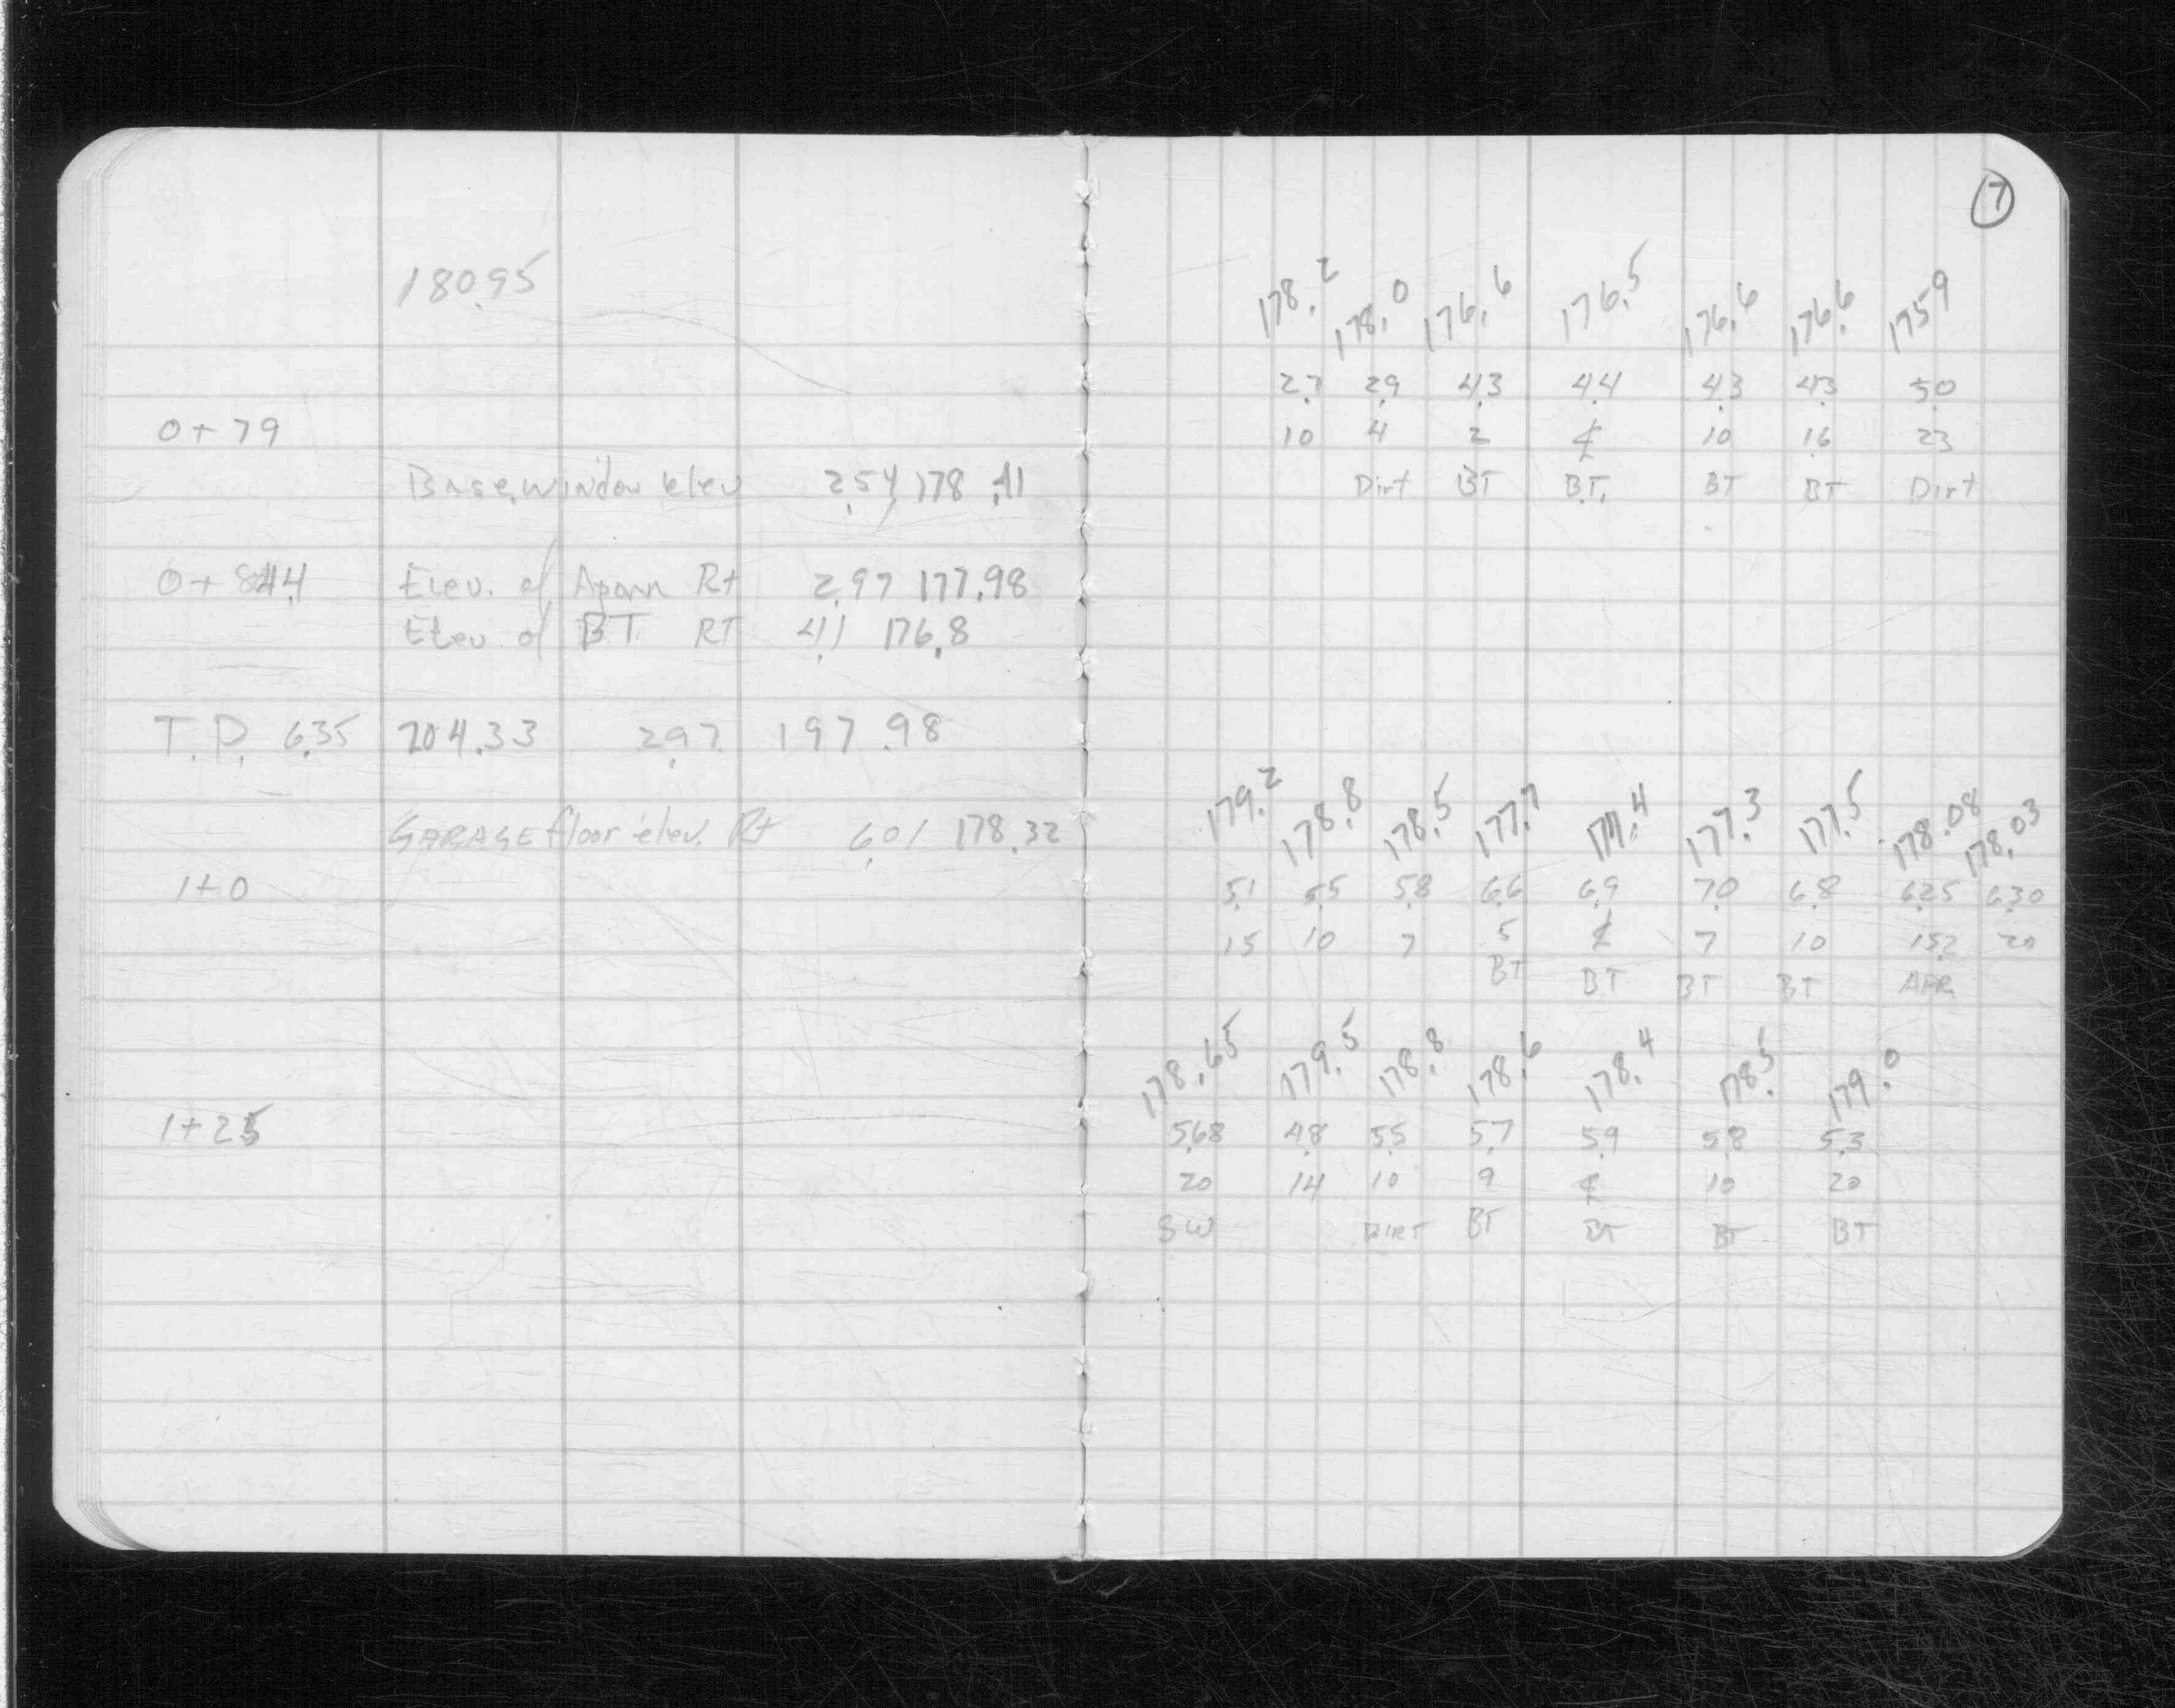 180.95
0+79
Base. window elev 2.54 178.41
0+84.4 Elev. of Aporn Rt 2.97 177.98
Elev. of BT. RT 4.1 176.8
T.P. 6.35 204.33 2.97 197.98
GARAGE floor elev. Rt 6.01 178.32
1+0
1+25
7
178.2 178.0 176.6 176.5 176.6 176.6 175.9
2.7 2.9 4.3 4.4 4.3 4.3 5.0
10 4 2 ℄ 10 16 23
Dirt BT B.T. BT BT Dirt
179.2 178.8 178.5 177.7 177.4 177.3 177.5 178.08 178.03
5.1 5.5 5.8 6.6 6.9 7.0 6.8 6.25 6.30
15 10 7 5 ℄ 7 10 15.2 20
BT BT BT BT APR
178.65 179.5 178.8 178.6 178.4 178.5 179.0
5.68 4.8 5.5 5.7 5.9 5.8 5.3
20 14 10 9 ℄ 10 20
BW DIRT BT BT BT BT